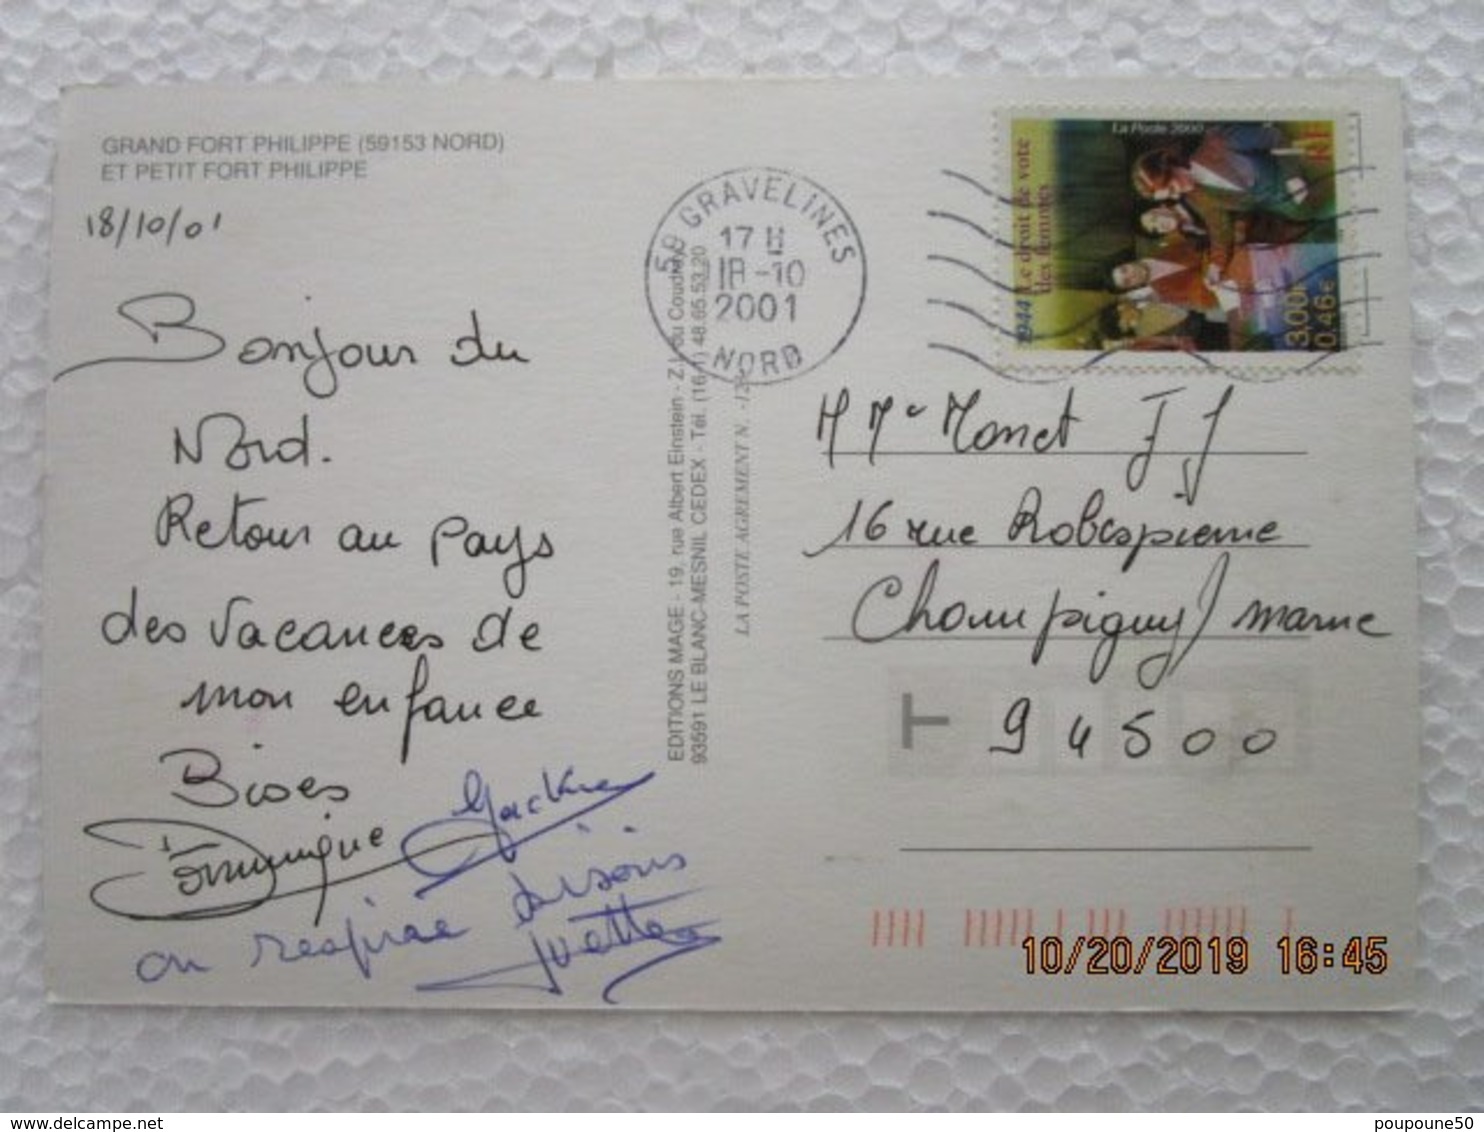 GRAND FORT PHILIPPE (59153 NORD)
ET PETIT FORT PHILIPPE
18/10/01
Bonjour du
Nord.
Retour au pays
des vacances de
mon enfance
Bises
Dominique
Jackie
on respire
bisous
Yvette
59 GRAVELINES
17 H
18-10
2001
NORD
EDITIONS MAGE - 19, rue Albert Einstein - Z.I. du Coudray
93591 LE BLANC-MESNIL CEDEX - Tél. (16-1) 48.65.53.20
LA POSTE AGREMENT N.
La Poste 2000
RF
1944 Le droit de vote
des femmes
3,00F
0,46€
M Me Monet J J
16 rue Robespierre
Champigny/ marne
T
94500
10/20/2019 16:45
poupoune50